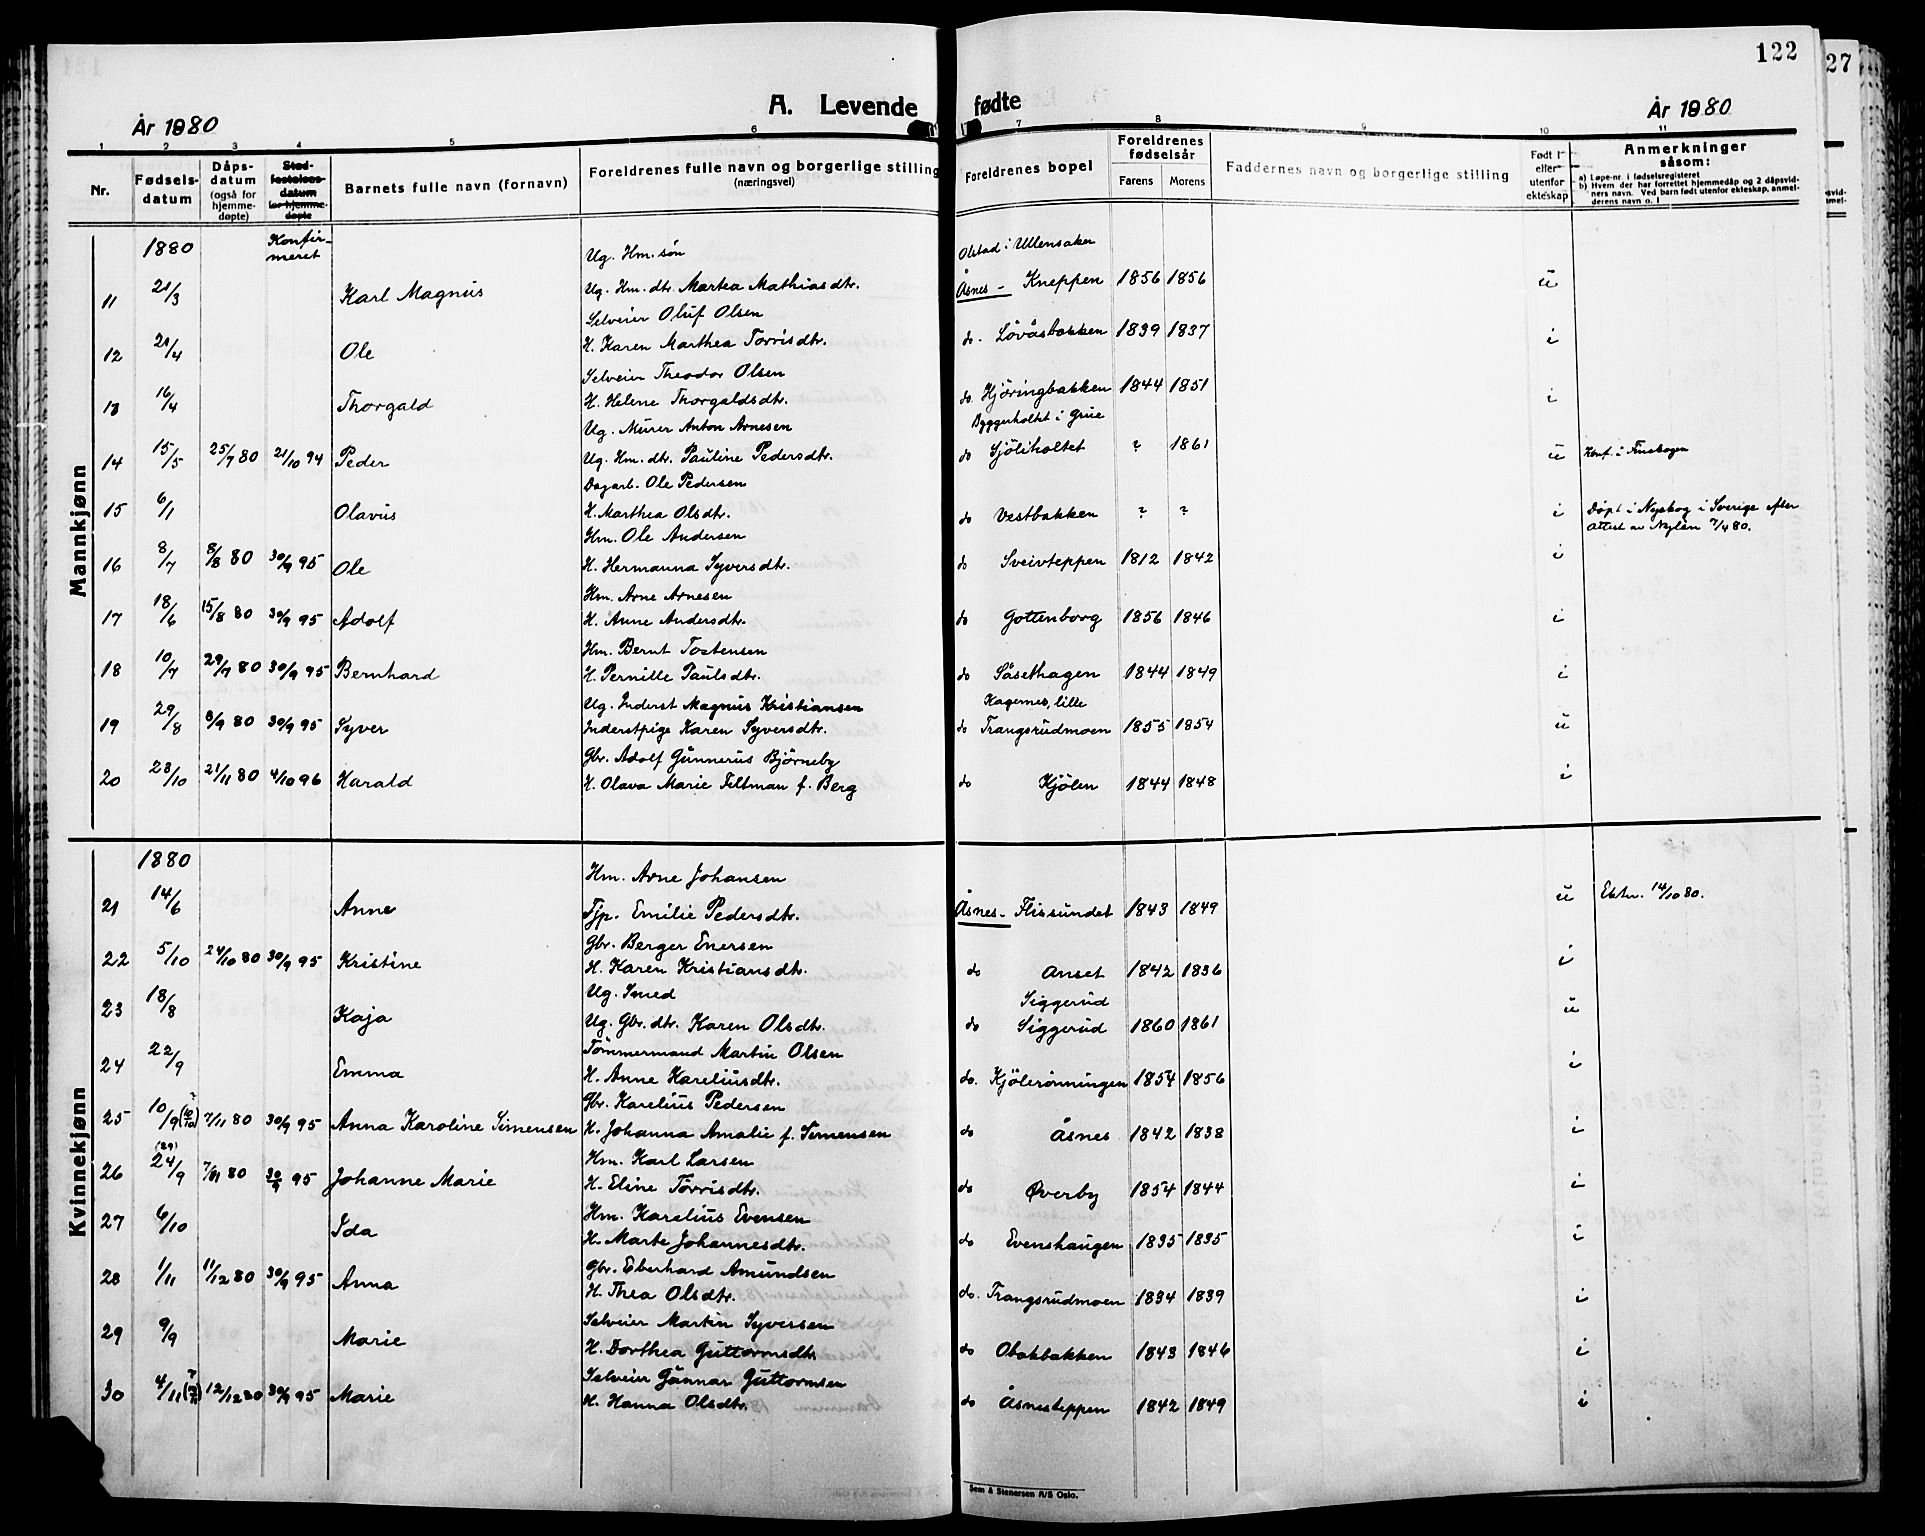 122
27
A. Levende fødte
År 1880
År 1880
1 2 3 4 5 6 7 8 9 10 11
Nr.
Fødselsdatum
Dåpsdatum (også for hjemmedøpte)
Stadfestelsesdatum for hjemmedøpte
Barnets fulle navn (fornavn)
Foreldrenes fulle navn og borgerlige stilling (næringsvei)
Foreldrenes bopel
Foreldrenes fødselsår
Farens Morens
Faddernes navn og borgerlige stilling
Født i eller utenfor ekteskap
Anmerkninger såsom:
a) Løpe-nr. i fødselsregisteret
b) Hvem der har forrettet hjemmedåp og 2 dåpsvidners navn. Ved barn født utenfor ekteskap, anmelderens navn o. l
Mannkjønn
1880 Konfirmeret
Ug. Hm. søn Olstad i Ullensaker
11 21/3 Karl Magnus Ug. Hm. dtr. Martea Mathiasdtr. Åsnes - Kneppen 1856 1856 u
Selveier Oluf Olsen
12 21/4 Ole H. Karen Marthea Torrisdtr. do. Lövåsbakken 1839 1837 i
Selveier Theodor Olsen
13 16/4 Thorgald H. Helene Thorgaldsdtr. do. Hjöringbakken 1844 1851 i
Ug. Murer Anton Arnesen Byggerholtet i Grue
14 15/5 25/7 80 21/10 94 Peder Ug. Hm. dtr. Pauline Pedersdtr. do Sjöliholtet ? 1861 u Konf. i Finskogen
Dagarb. Ole Pedersen
15 6/1 Olavus H. Marthea Olsdtr. do Vestbakken ? ? i Döpt i Nyskog i Sverige efter
attest av Nylén 7/4 80.
Hm. Ole Andersen
16 8/7 8/8 80 30/9 95 Ole H. Hermanna Syversdtr. do Sveivteppen 1812 1842 i
Hm. Arne Arnesen
17 18/6 15/8 80 30/9 95 Adolf H. Anne Andersdtr. do Gottenborg 1856 1846 i
Hm. Bernt Tostensen
18 10/7 29/7 80 30/9 95 Bernhard H. Pernille Paulsdtr. do Såsethagen 1844 1849 i
Ug. Inderst Magnus Kristiansen Kagernes, lille
19 29/8 8/9 80 30/9 95 Syver Inderstpige Karen Syversdtr. do Trangsrudmoen 1855 1854 u
Gbr. Adolf Gunnerus Björneby
20 28/10 21/11 80 4/10 96 Harald H. Olava Marie Feltman f. Berg do Kjölen 1844 1848 i
Kvinnekjønn
1880
Hm. Arne Johansen
21 14/6 Anne Tjp. Emilie Pedersdtr. Åsnes - Flissundet 1843 1849 u Ektev. 14/10 80.
Gbr. Berger Enersen
22 5/10 24/10 80 30/9 95 Kristine H. Karen Kristiansdtr. do Anset 1842 1836 i
Ug. Smed Siggerud
23 18/8 Kaja Ug. Gbr. dtr. Karen Olsdtr. do Siggerud 1860 1861 u
Tömmermand Martin Olsen
24 22/9 Emma H. Anne Kareliusdtr. do. Kjölerönningen 1854 1856 i
Gbr. Karelius Pedersen
25 10/9 (10/10)? 7/11 80 30/9 95 Anna Karoline Simensen H. Johanna Amalie f. Simensen do Åsnes 1842 1838 i
Hm. Karl Larsen
26 (29) 24/9 7/11 80 30/9 95 Johanne Marie H. Eline Torrisdtr. do Øverby 1854 1844 i
Hm. Karelius Evensen
27 6/10 Ida H. Marte Johannesdtr. do Evenshaugen 1835 1835 i
Gbr. Eberhard Amundsen
28 1/11 11/12 80 30/9 95 Anna H. Thea Olsdtr. do. Trangsrudmoen 1834 1839 i
Selveier Martin Syversen
29 9/9 Marie H. Dorthea Guttormsdtr. do Obakbakken 1843 1846 i
Selveier Gunnar Guttormsen
30 4/11 12/12 80 30/9 95 Marie H. Hanna Olsdtr. do Åsnesteppen 1842 1849 i
Sem & Stenersen A/S Oslo.